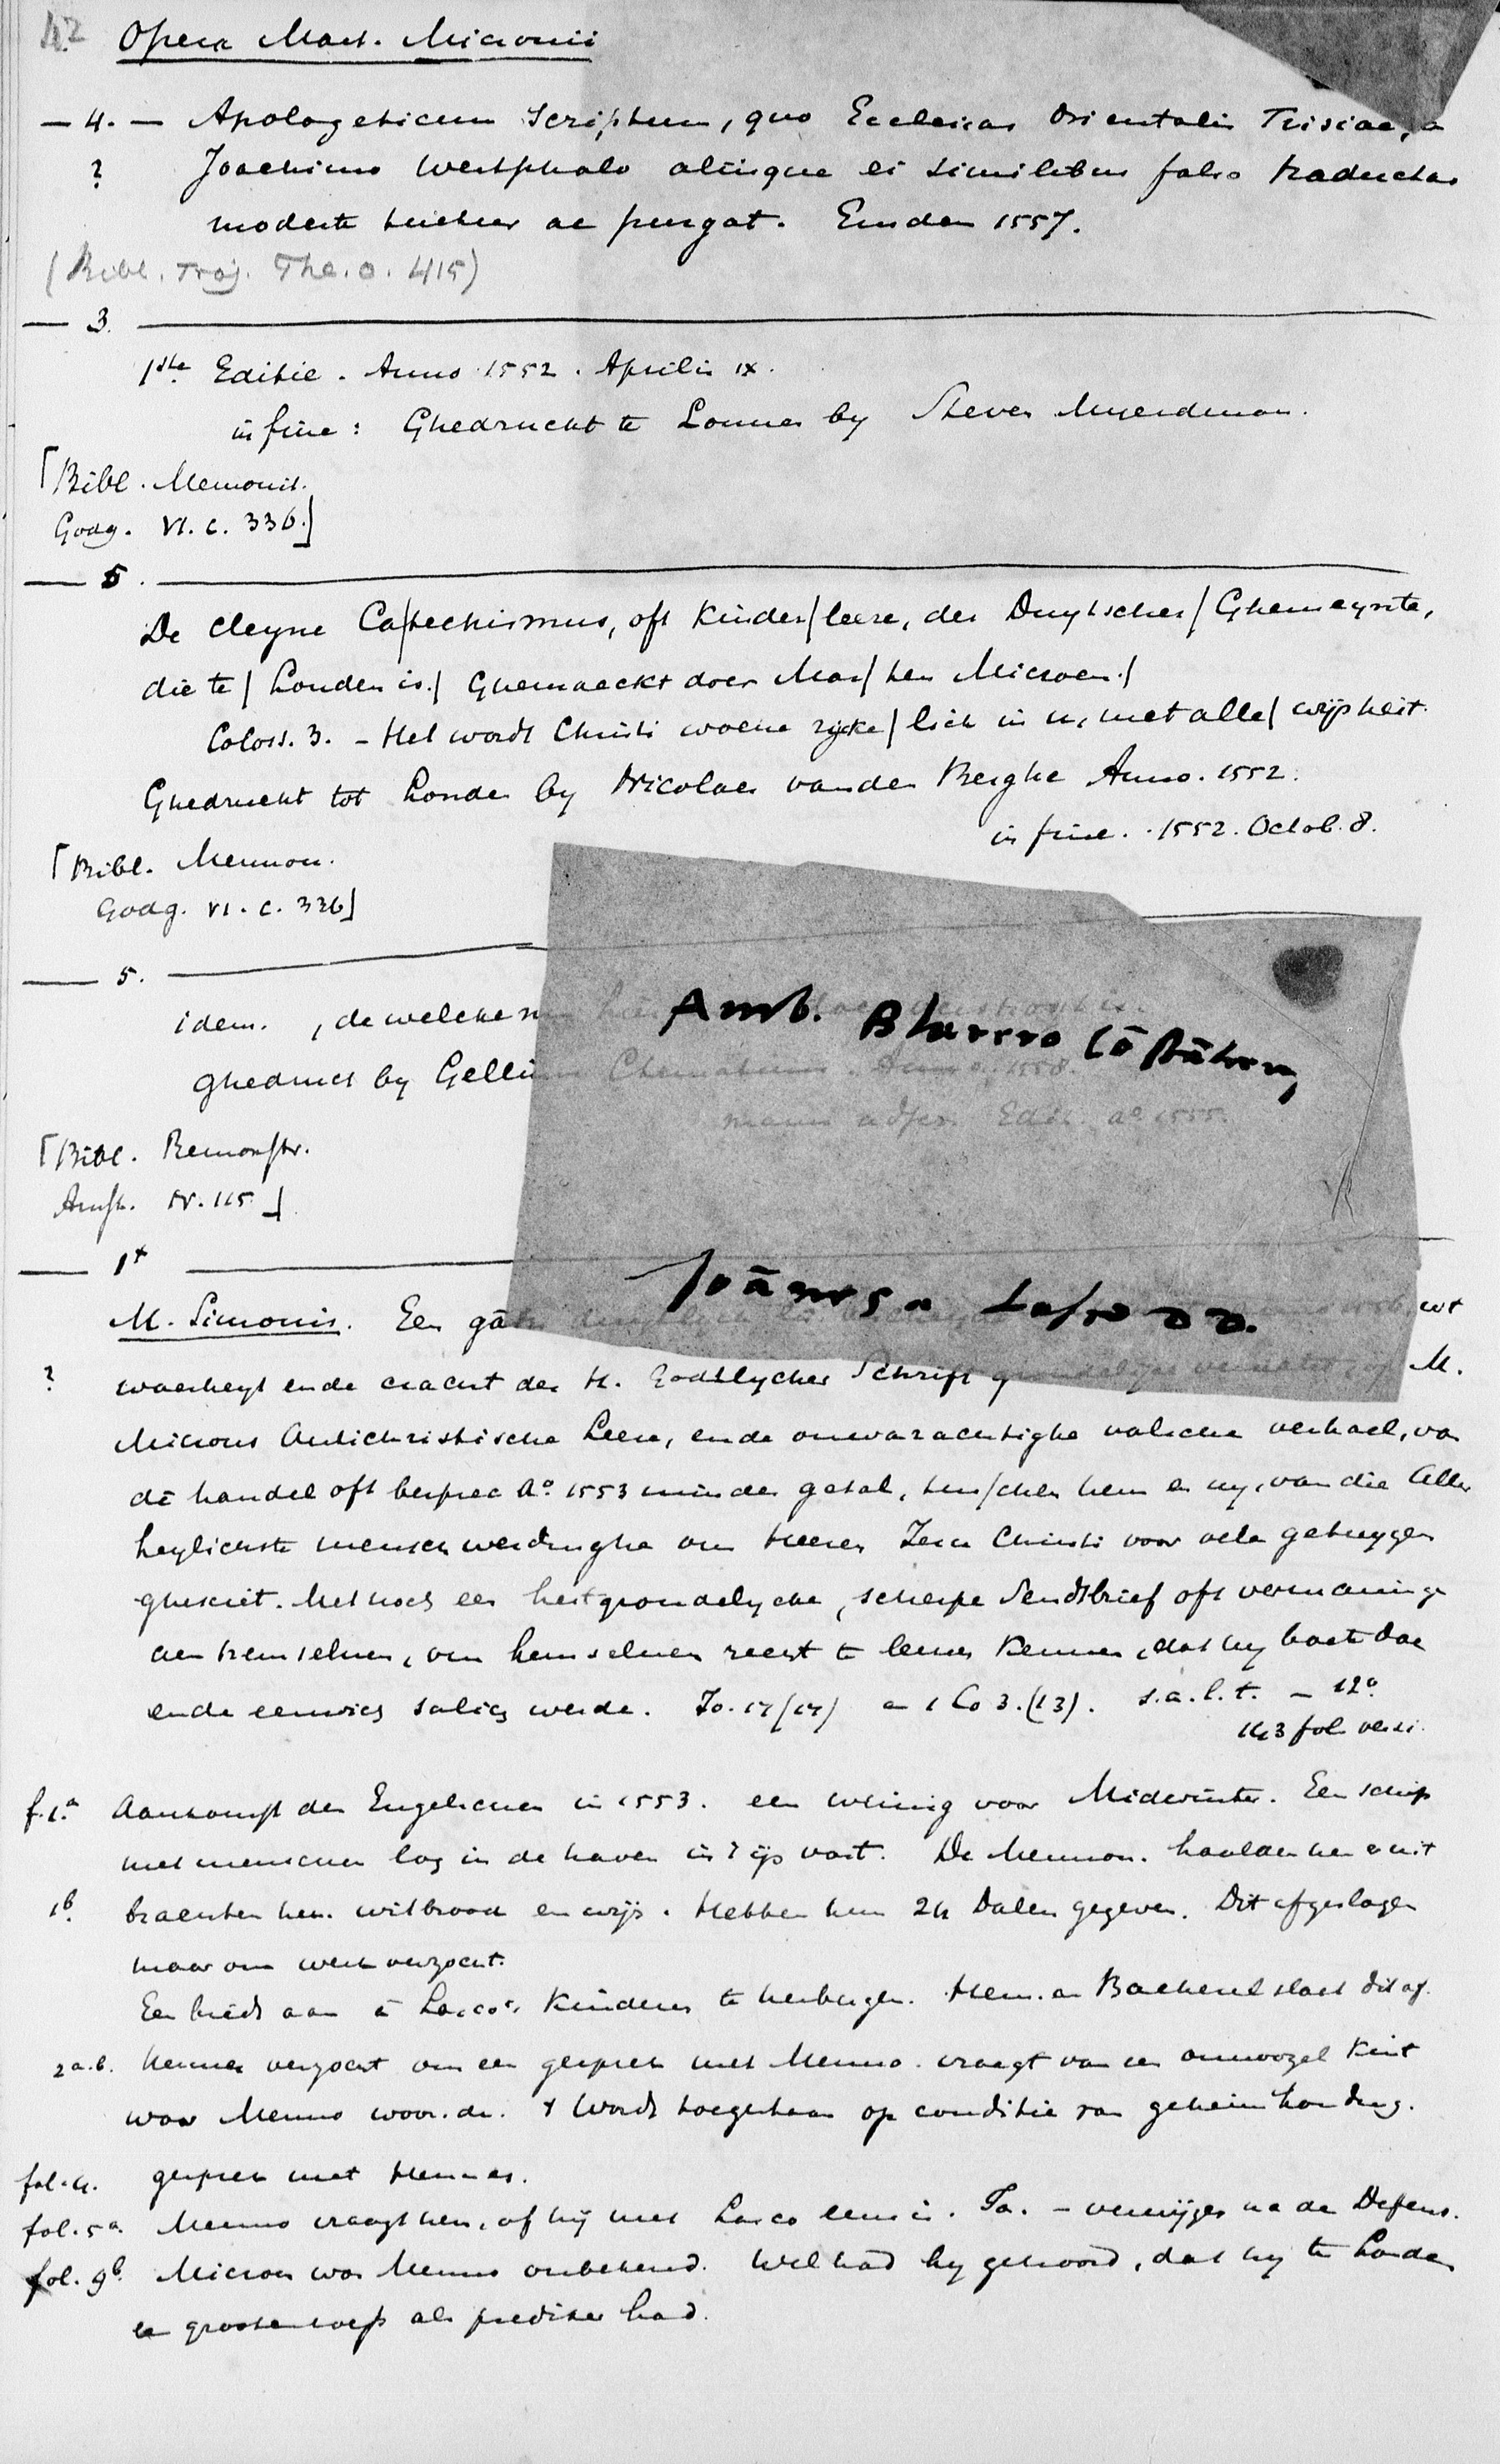 42 Opera Mart. Micronii
— 4. — Apologeticum scriptum, quo Ecclesias Orientalis Frisiae, a
? Joachimo Westphalo aliisque ei similibus falso traductas
modeste tuetur ac purgat. Emden 1557.
(Bibl. Traj. The. o. 415)
— 3.
1ste Editie. Anno 1552. Aprilis ix.
in fine: Ghedruckt te Lonnen by Steven Myerdman.
[Bibl. Mennonit.
Godg. VI. c. 336.]
— 5.
De cleyne Ca/techismus, oft Kinder/leere, der Duytscher/Ghemeynte,
die te/Londen is./Ghemaeckt doer Mar/ten Microen./
Coloss. 3. – Het wordt Christi woene rycke/lick in u, met alle/wijsheit.
Ghedruckt tot Londen by Nicolaes van den Berghe Anno. 1552.
in fine. 1552. Octob. 8.
[Bibl. Mennon.
Godg. VI. c. 336]
— 5.
idem. , de welcke
Amb. Blarero
ghedruct by Gellium Ctematium. Anno. 1558.
Edit. ao 1555.
[Bibl. Remonstr.
Amst. N. 115]
— 1+
Joānes a Lasco DD.
M. Simonis. Een
? waerheyt ende cracht der H. Godtlycker Schrift M.
Microns Antichristische Leere, ende onwarachtighe valsche verhael, van
dē handel oft besprec Ao. 1553 minder getal, tusschen hem en my, van die Aller
heylichste menschwerdinghe ons Heeren Jesu Christi voor vele getuygen
gheschiet. Met noch een hertgrondelycke, scherpe Sendtbrief oft vermaninge
aen hemselven, om hemselven recht te leeren kennen, dat hy boete doe
ende eeuwich salich werde. Jo. 17/17) 1 Co 3. (13). s.a.l.t. – 12o
143 fol.
f. 1.a Aankomst der Engelschen in 1553. een weinig voor Midwinter. Een schip
met menschen lag in de haven in 't ijs vast. De Mennon. haalden hen er uit
1b. brachten hen witbrood en wijn. Hebben hun 24 Dalers gegeven. Dit afgeslagen
maar om werk verzocht.
Een biedt aan à Lasco's Kinderen te herbergen. Herman Backereel slaat dit af.
2 a.b. Hermes verzocht om een gesprek met Menno. vraagt van een onnoozel kint
waar Menno woonde. + Wordt toegestaan op conditie van geheimhouding.
fol. 4. gesprek met Hermes.
fol. 5a. Menno vraagt hen, of hij met Lasco eens is. Ja. – verwijzen na de Defens.
fol. 9b. Micron was Menno onbekend. Wel had hy gehoord, dat hy te Londen
een grooten roep als prediker had.